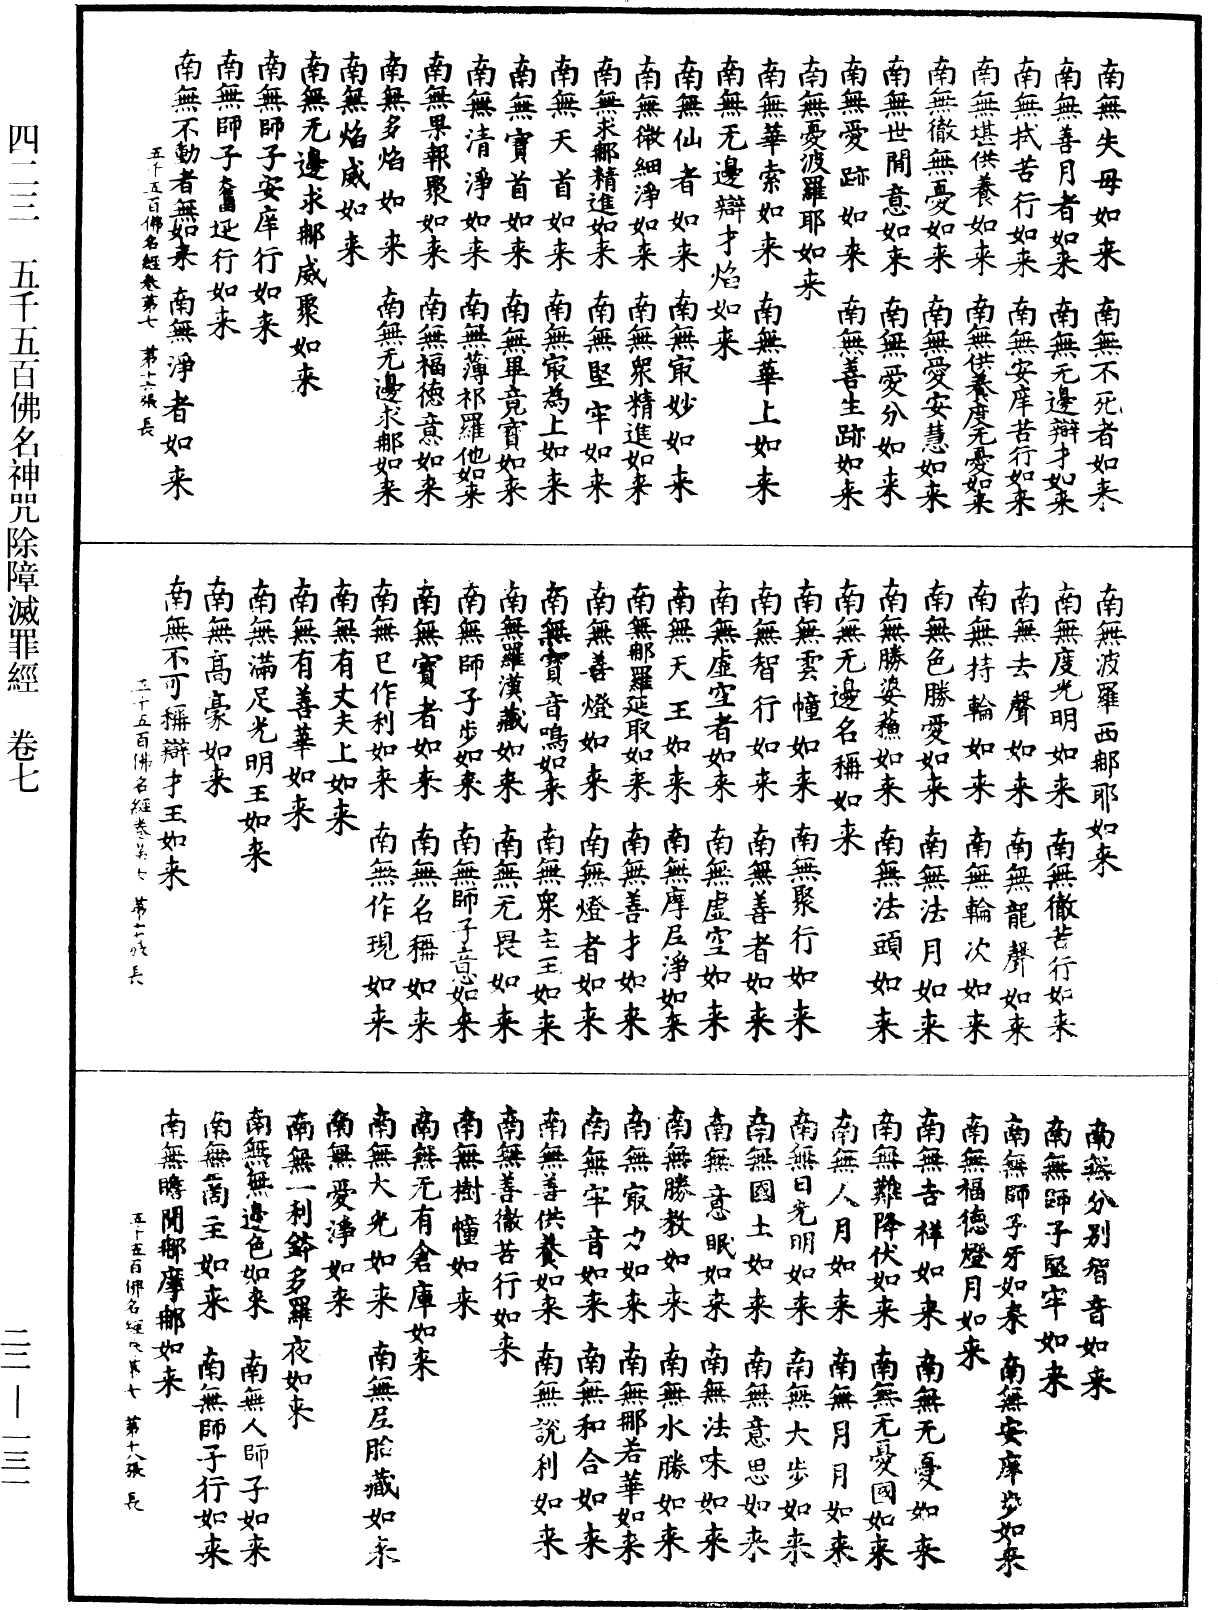 四二三　五千五百佛名神咒除障滅罪經　卷七
二二—一三一
南無失毋如来　南無不死者如来
南無善月者如来　南無无邊辯才如来
南無拭苦行如来　南無安庠苦行如来
南無堪供養如来　南無供養度无憂如来
南無徹無憂如来　南無愛安慧如来
南無世間意如来　南無愛分如来
南無愛跡如来　南無善生跡如来
南無憂波羅耶如来
南無華索如来　南無華上如来
南無无邊辯才焰如来
南無仙者如来　南無㝡妙如来
南無微細淨如来　南無衆精進如来
南無求那精進如来　南無堅牢如来
南無天首如来　南無㝡為上如来
南無寶首如来　南無畢竟寶如来
南無清淨如来　南無薄祁羅他如来
南無果報聚如来　南無福德意如来
南無多焰如来　南無无邊求那如来
南無焰威如来
南無无邊求那威聚如来
南無師子安庠行如来
南無師子奮迅行如来
南無不動者無如来　南無淨者如来
五千五百佛名經卷第七　第十六張　長
南無波羅西那耶如来
南無度光明如来　南無徹苦行如来
南無去聲如来　南無龍聲如来
南無持輪如来　南無輪次如来
南無色勝愛如来　南無法月如来
南無勝婆蘓如来　南無法頭如来
南無无邊名稱如来
南無雲幢如来　南無聚行如来
南無智行如来　南無善者如来
南無虛空者如来　南無虛空如来
南無天王如来　南無摩尼淨如来
南無那羅延取如来　南無善才如来
南無善燈如来　南無燈者如来
南無寶音鳴如来　南無衆主王如来
南無羅漢藏如来　南無无畏如来
南無師子步如来　南無師子意如来
南無寶者如来　南無名稱如来
南無已作利如来　南無作現如来
南無有丈夫上如来
南無有善華如来
南無滿足光明王如来
南無髙豪如来
南無不可稱辯才王如来
五千五百佛名經卷第七　第十七張　長
南無分別智音如来
南無師子堅牢如来
南無師子牙如来　南無安庠步如来
南無福德燈月如来
南無吉祥如来　南無无憂如来
南無難降伏如来　南無无憂國如来
南無人月如来　南無月月如来
南無日光明如来　南無大步如来
南無國土如来　南無意思如来
南無意眠如来　南無法味如来
南無勝教如来　南無水勝如来
南無㝡力如来　南無那若華如来
南無牢音如来　南無和合如来
南無善供養如来　南無說利如来
南無善徹苦行如来
南無樹幢如来
南無无有倉庫如来
南無大光如来　南無尼胎藏如来
南無愛淨如来
南無一利鉢多羅夜如来
南無無邊色如来　南無人師子如来
南無啇主如来　南無師子行如来
南無瞻閒那摩那如来
五千五百佛名經卷第七　第十八張　長